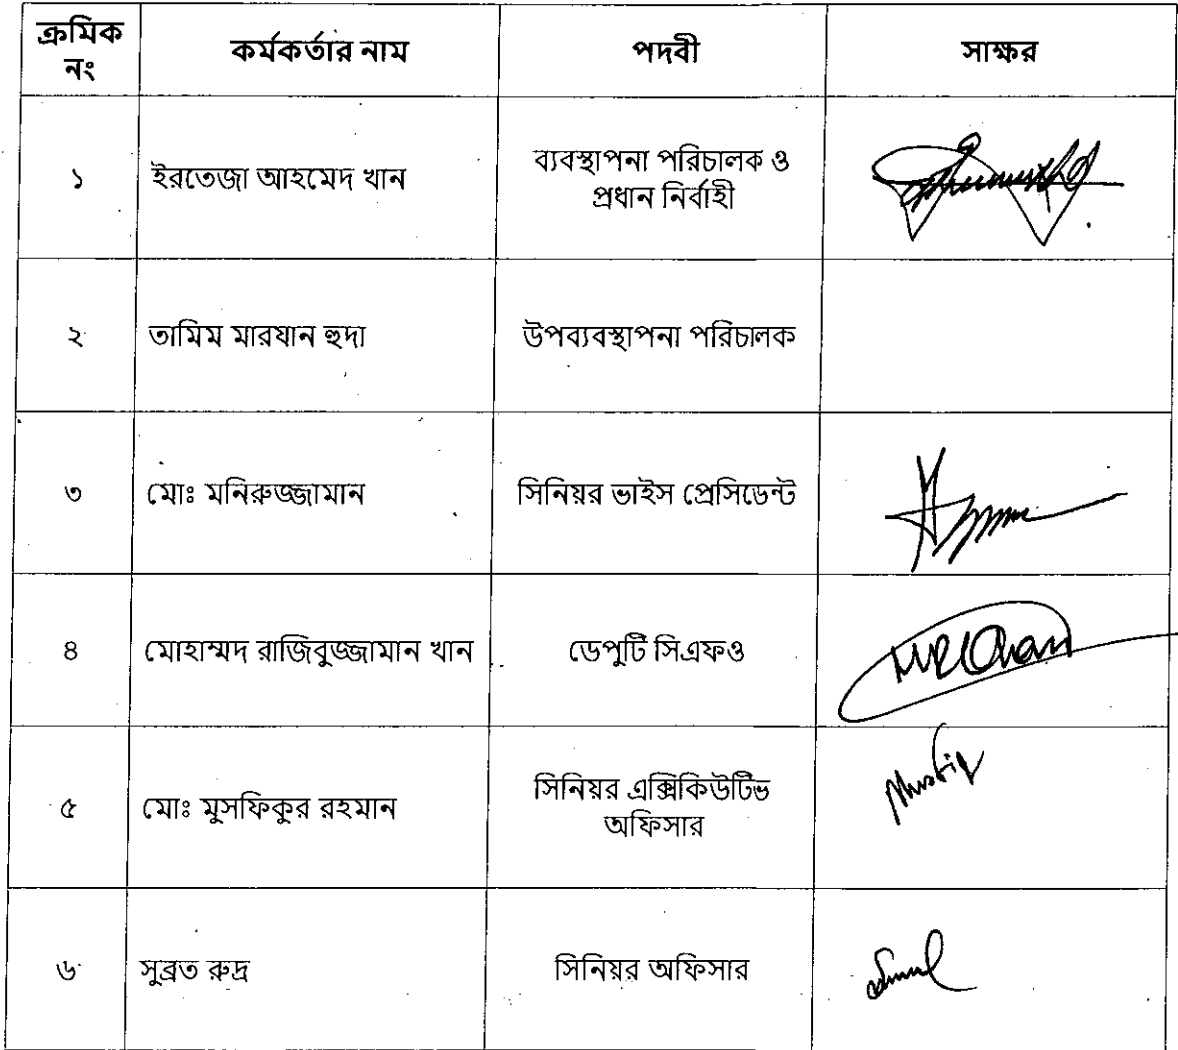 ক্রমিক
নং
কর্মকর্তার নাম
পদবী
সাক্ষর
১
ইরতেজা আহমেদ খান
ব্যবস্থাপনা পরিচালক ও
প্রধান নির্বাহী
২
তামিম মারযান হুদা
উপব্যবস্থাপনা পরিচালক
৩
মোঃ মনিরুজ্জামান
সিনিয়র ভাইস প্রেসিডেন্ট
৪
মোহাম্মদ রাজিবুজ্জামান খান
ডেপুটি সিএফও
৫
মোঃ মুসফিকুর রহমান
সিনিয়র এক্সিকিউটিভ
অফিসার
৬
সুব্রত রুদ্র
সিনিয়র অফিসার